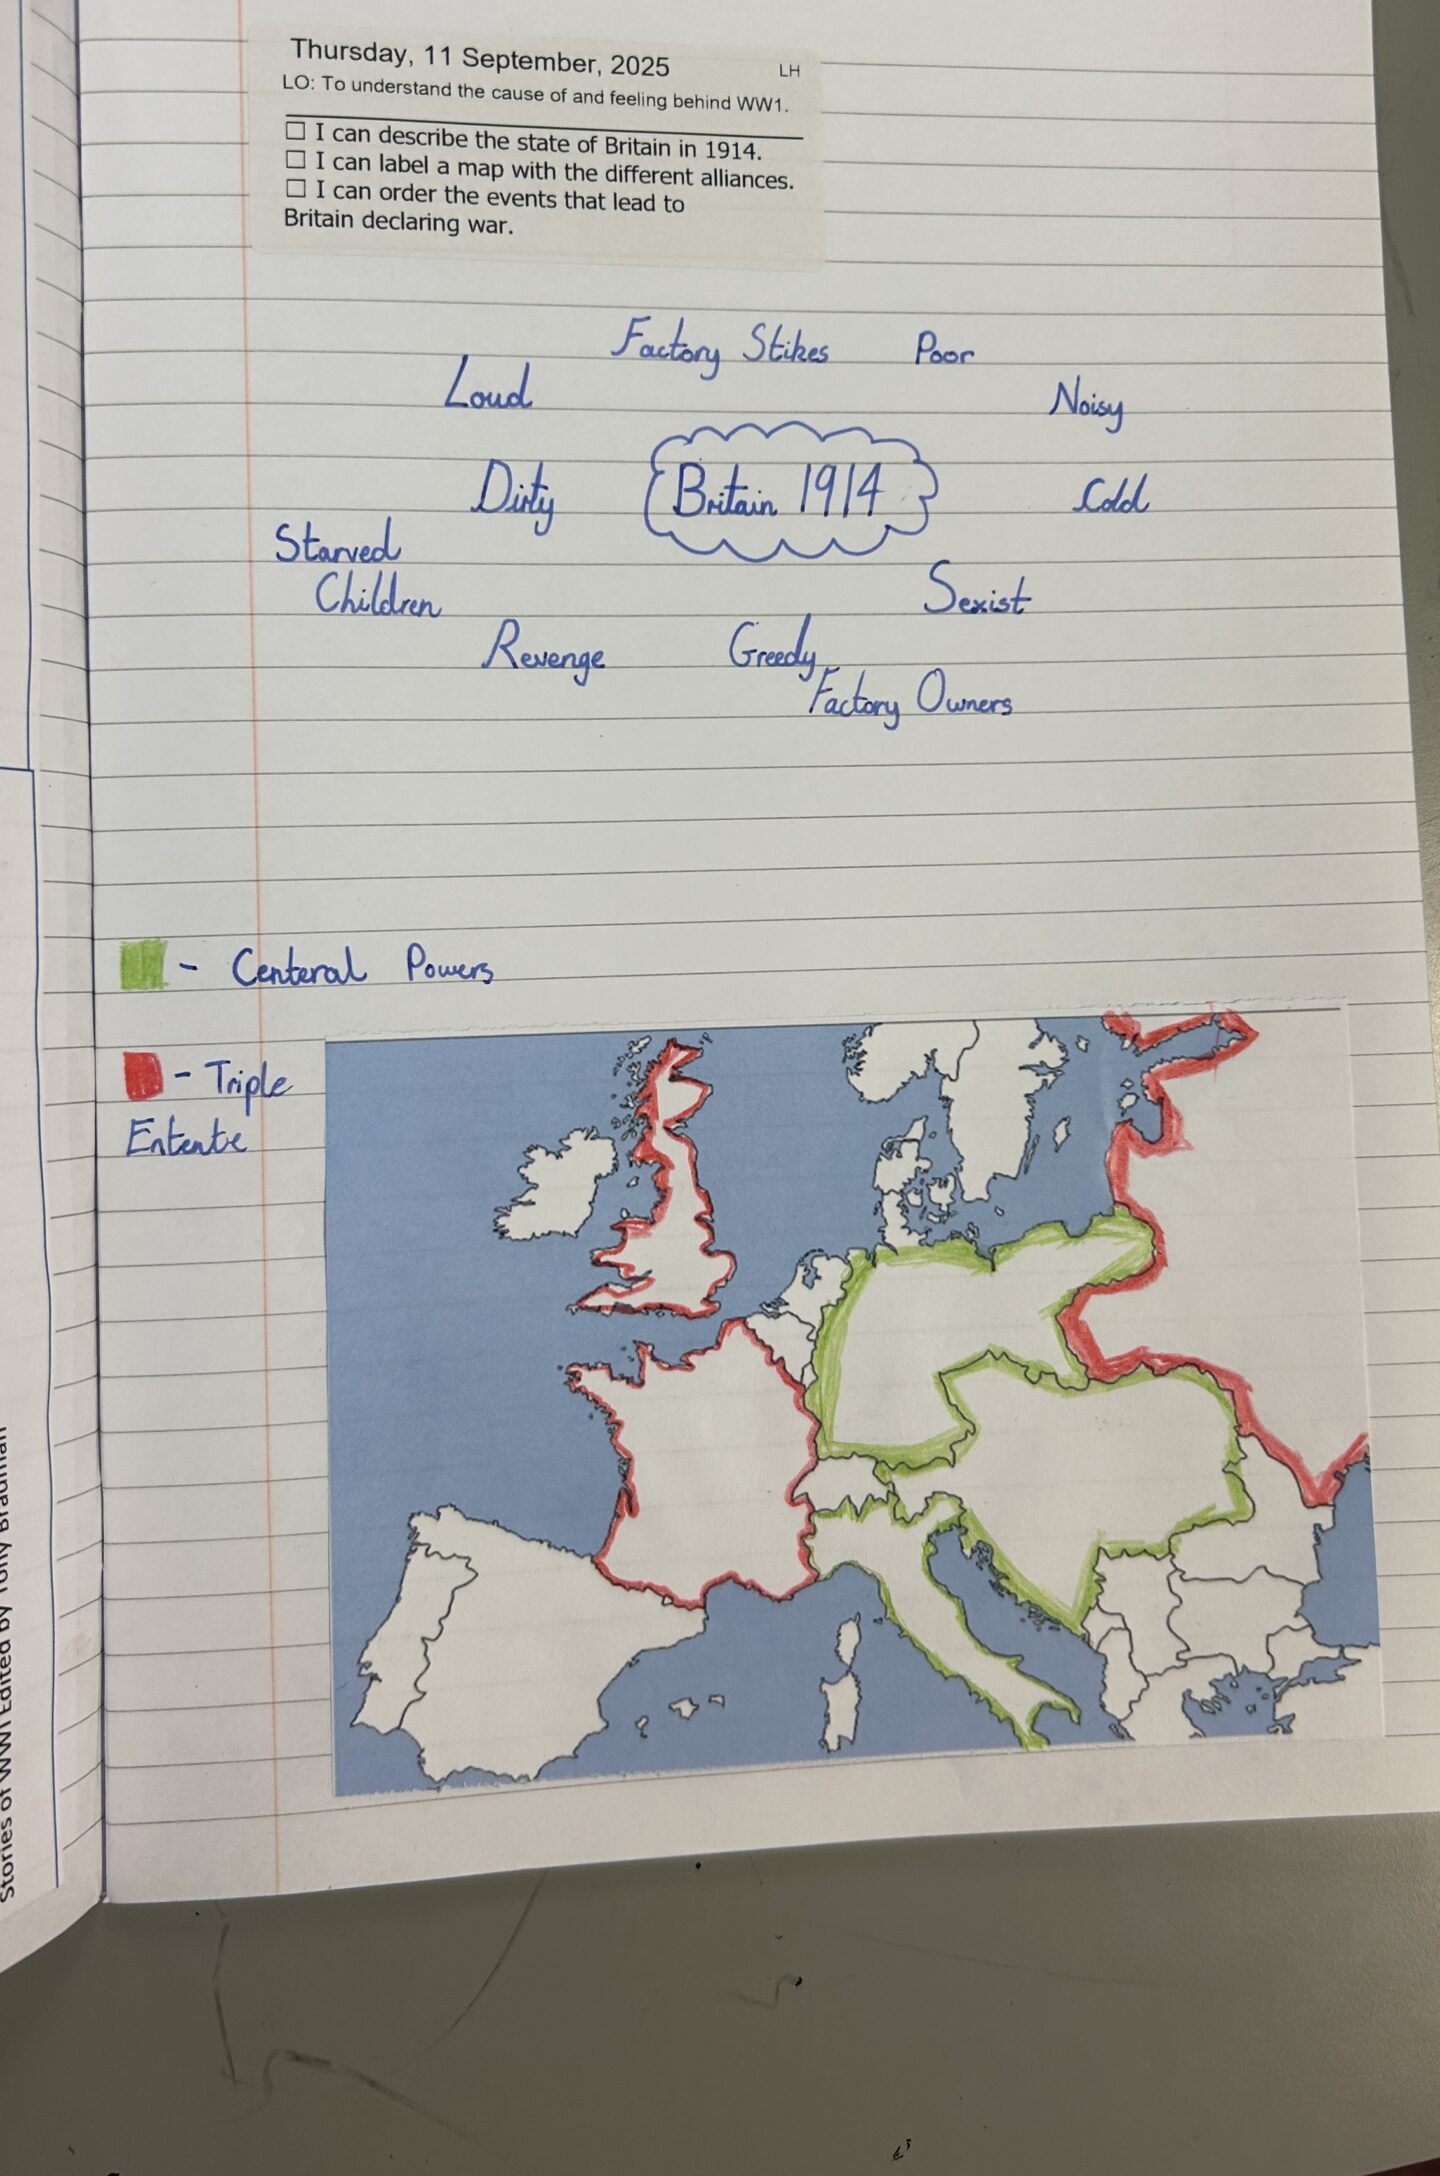 Thursday, 11 September, 2025
LH
LO: To understand the cause of and feeling behind WW1.
☐ I can describe the state of Britain in 1914.
☐ I can label a map with the different alliances.
☐ I can order the events that lead to
Britain declaring war.
Factory Stikes
Poor
Loud
Noisy
Dirty
Britain 1914
Cold
Starved
Children
Sexist
Revenge
Greedy
Factory Owners
- Centeral Powers
- Triple
Entente
Stories of WWI Edited by Tony Bradman